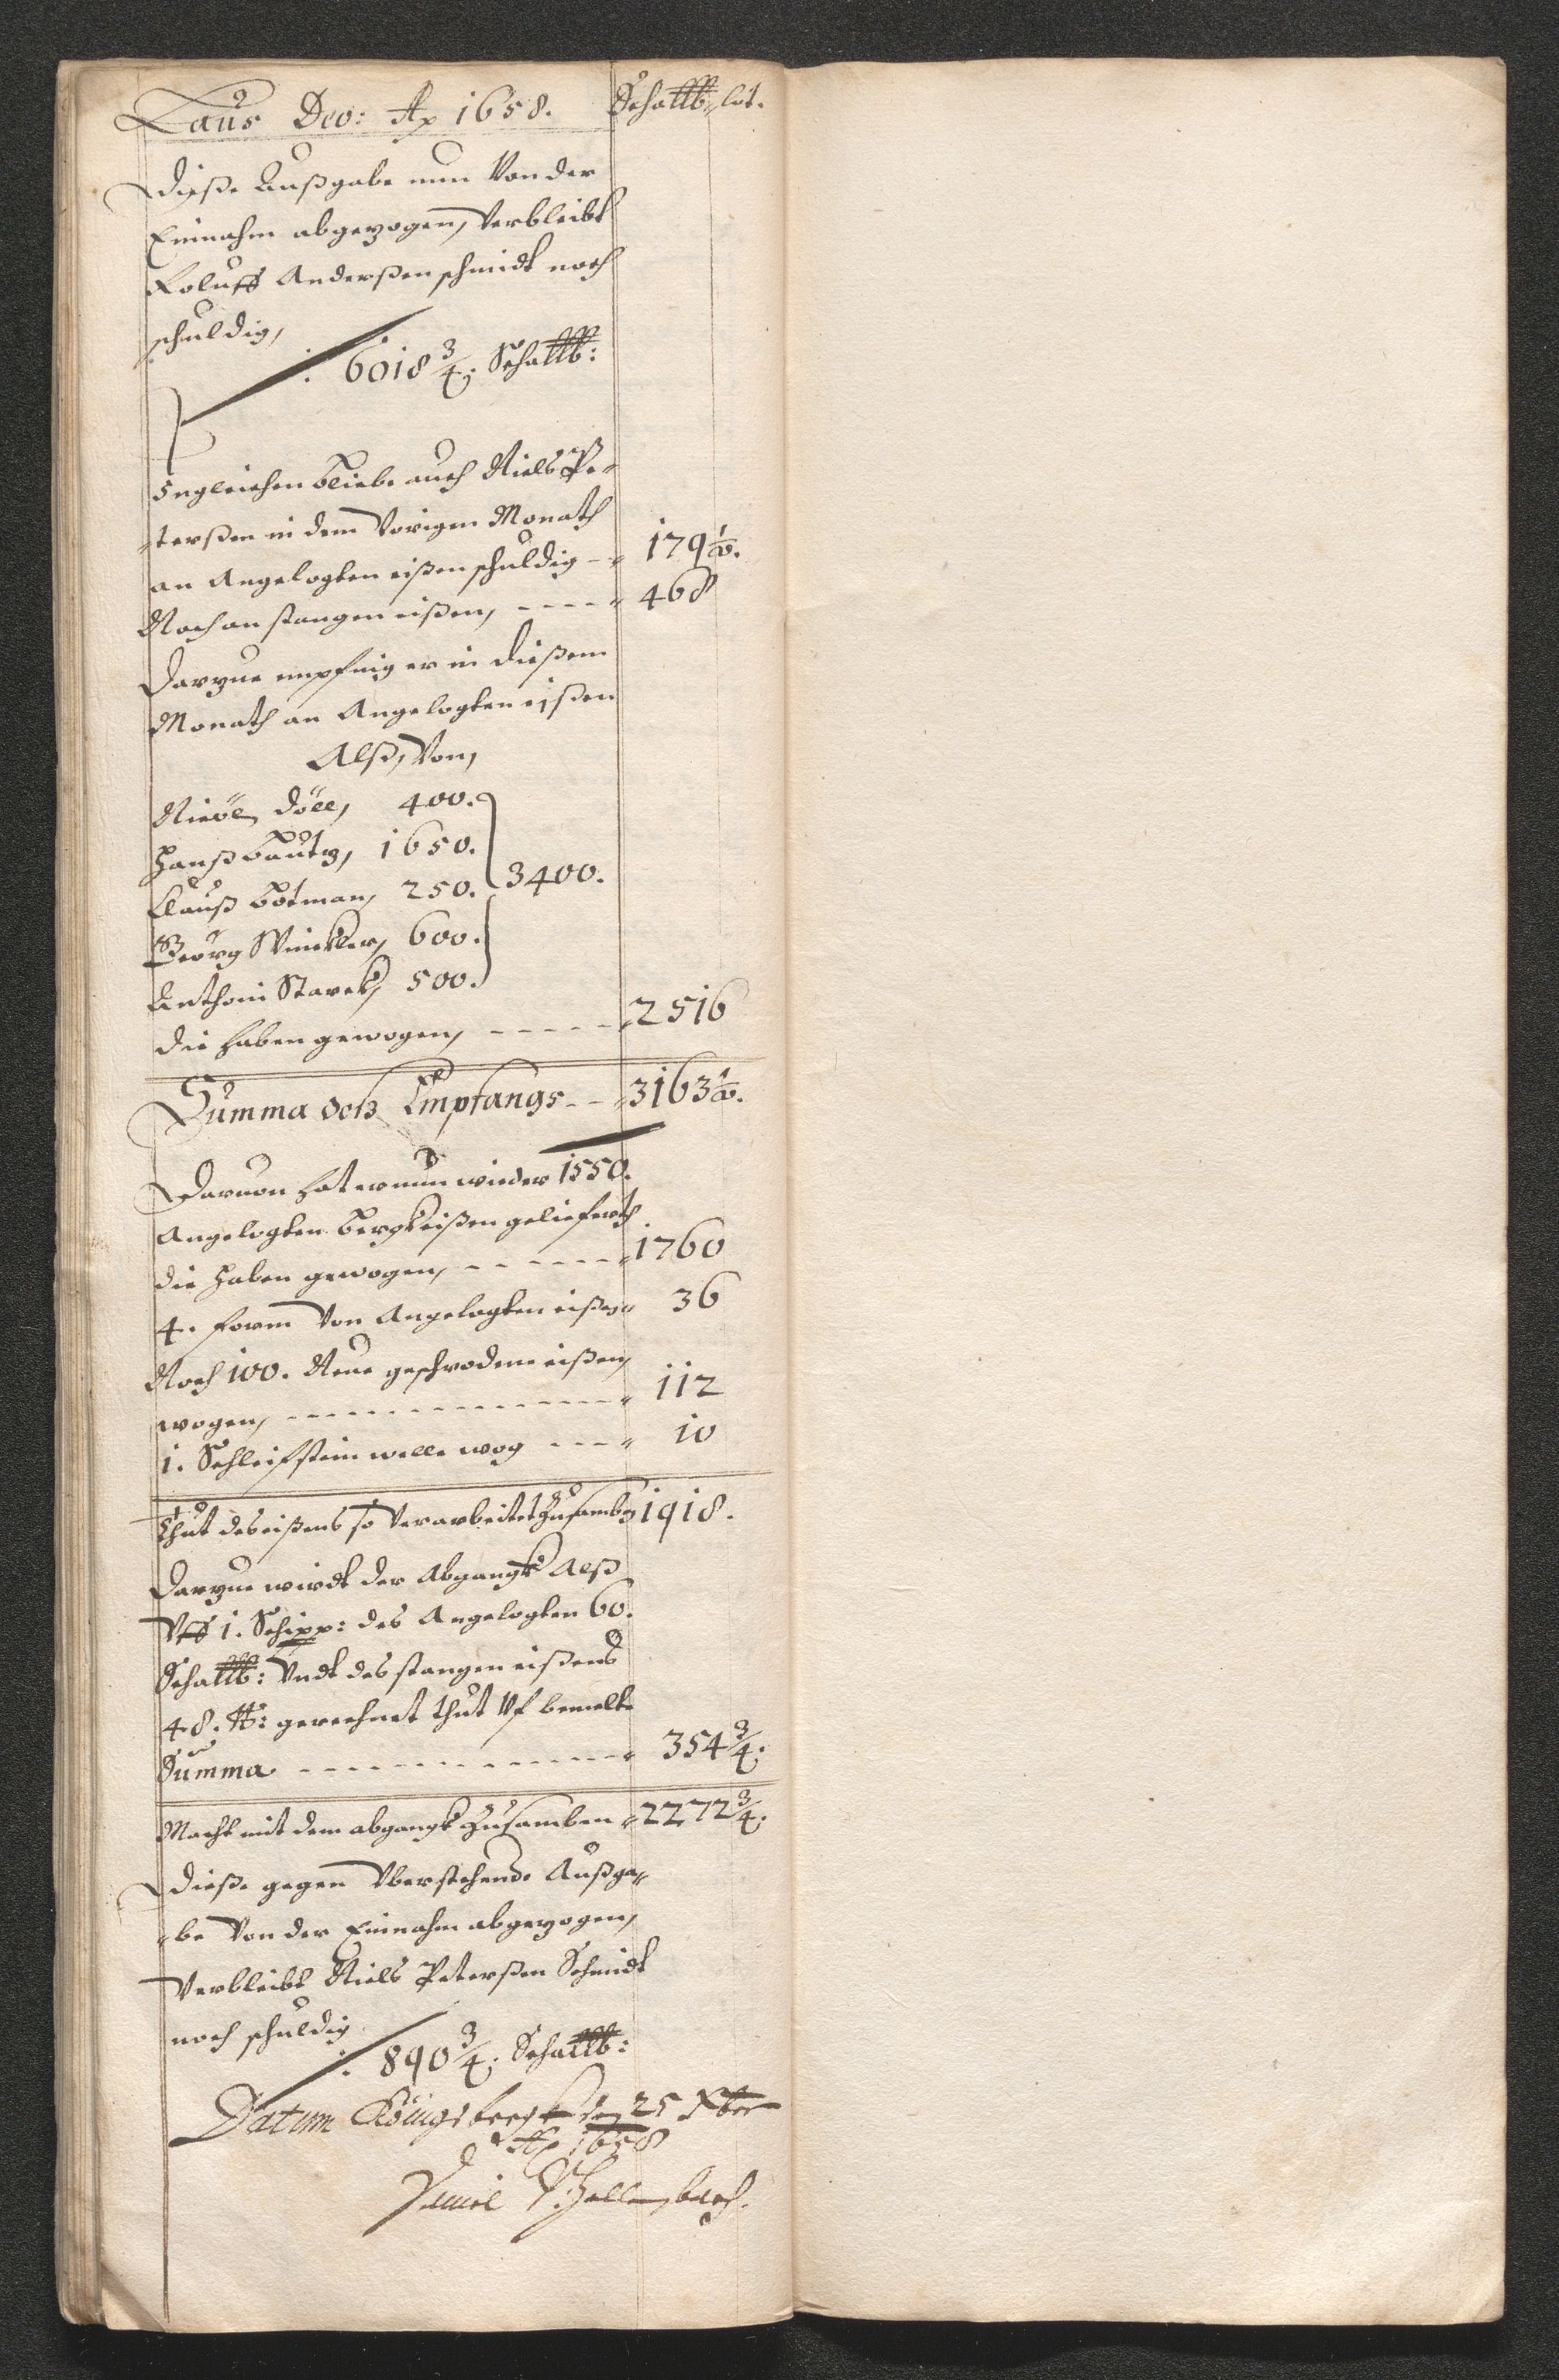 Laus Deo: Aº 1658. Schal℔ lot.
Dieße Außgabe nun Von der
Einnahm abgezogen, Verbleibt
Roluff Anderßen schmidt noch
schuldig,
∕. 6018¾. Schal℔:
Ingleichen bliebe auch Niels Pe-
-terßen in dem Vorigen Monath
an Angelegten eißen schuldig -- 179½.
Noch an stangen eißen, ---- 468
Darzue empfing er in dießem
Monath an Angelegten eißen
Alß, Von,
Nicol Döll, 400.
Hanß Bautz, 1650.
Clauß Botman, 250. 3400.
Georg Winckler, 600.
Anthoni Starck, 500.
die haben gewogen, ----- 2516
Summa deß Empfangs -- 3163½.
Daruon hat er nun wieder 1550.
Angelegten Bergkeißen gelieferth
die haben gewogen, ------ 1760
4. form Von Angelegten eißen 36
Noch 100. Neue geschrodene eißen,
wogen, -------------- 112
1. Schleifstein welle wog ---- 10
Thut des eißens so Verarbeitet Zusamben 1918.
Darzue wirdt der Abgangk Alß
Vff 1. Schipp: des Angelegten 60.
Schal℔: Vndt des stangen eißens
48. ℔: gerechnet thut Vf bemelte
Summa ------------- 354¾.
Macht mit dem abgangk Zusamben 2272¾.
Dieße gegen Vberstehende Außga-
-be Von der Einnahm abgezogen,
Verbleibt Niels Peterßen Schmidt
noch schuldig
∕. 890¾. Schal℔:
Datum Königsbergk den 25 Xber
Aº 1658